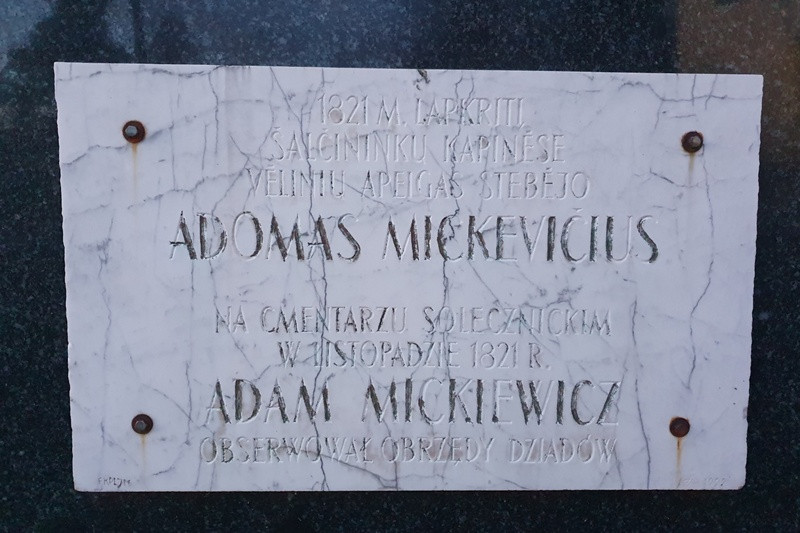 1821 M. LAPKRITĮ
ŠALČININKŲ KAPINĖSE
VĖLINIŲ APEIGAS STEBĖJO
ADOMAS MICKEVIČIUS
NA CMENTARZU SOLECZNICKIM
W LISTOPADZIE 1821 R.
ADAM MICKIEWICZ
OBSERWOWAŁ OBRZĘDY DZIADÓW